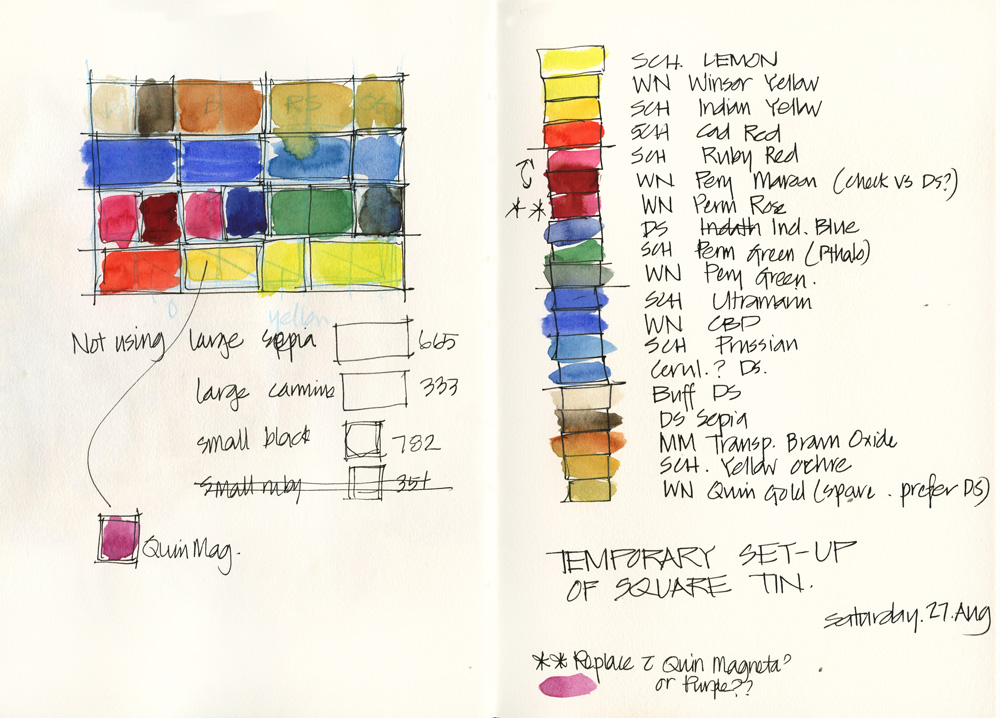 B
RS
yellow
Not using large sepia 665
large carmine 333
small black 782
small ruby 351
Quin Mag.
SCH. LEMON
WN Winsor Yellow
SCH Indian Yellow
SCH Cad Red
SCH Ruby Red
WN Pery Maroon (check vs DS?)
** WN Perm Rose
DS Indath Ind. Blue
SCH Perm Green (Pthalo)
WN Pery Green.
SCH Ultramann
WN CBD
SCH Prussian
Cerul.? DS.
Buff DS
DS Sepia
MM Transp. Brown Oxide
SCH. Yellow Ochre
WN Quin Gold (spare. prefer DS)
TEMPORARY SET-UP
OF SQUARE TIN.
Saturday. 27. Aug
** Replace Quin Magneta?
or Purple??